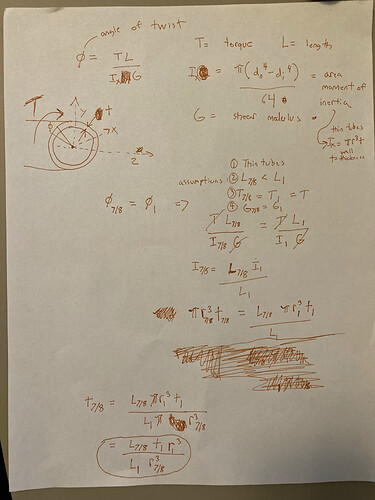 angle of twist
T = torque L = length
ϕ = TL / I G
I = π(d₀⁴ - dᵢ⁴) / 64 = area moment of inertia
G = shear modulus
thin tubes
Iₓ = πr³t
wall thickness
T
y
t
x
z
① Thin tubes
assumptions ② L₇/₈ < L₁
③ T₇/₈ = T₁ = T
④ G₇/₈ = G₁
ϕ₇/₈ = ϕ₁ ⇒ T L₇/₈ / I₇/₈ G = T L₁ / I₁ G
I₇/₈ = L₇/₈ I₁ / L₁
π r₇/₈³ t₇/₈ = L₇/₈ π r₁³ t₁ / L₁
t₇/₈ = L₇/₈ π r₁³ t₁ / L₁ π r₇/₈³
= L₇/₈ t₁ r₁³ / L₁ r₇/₈³